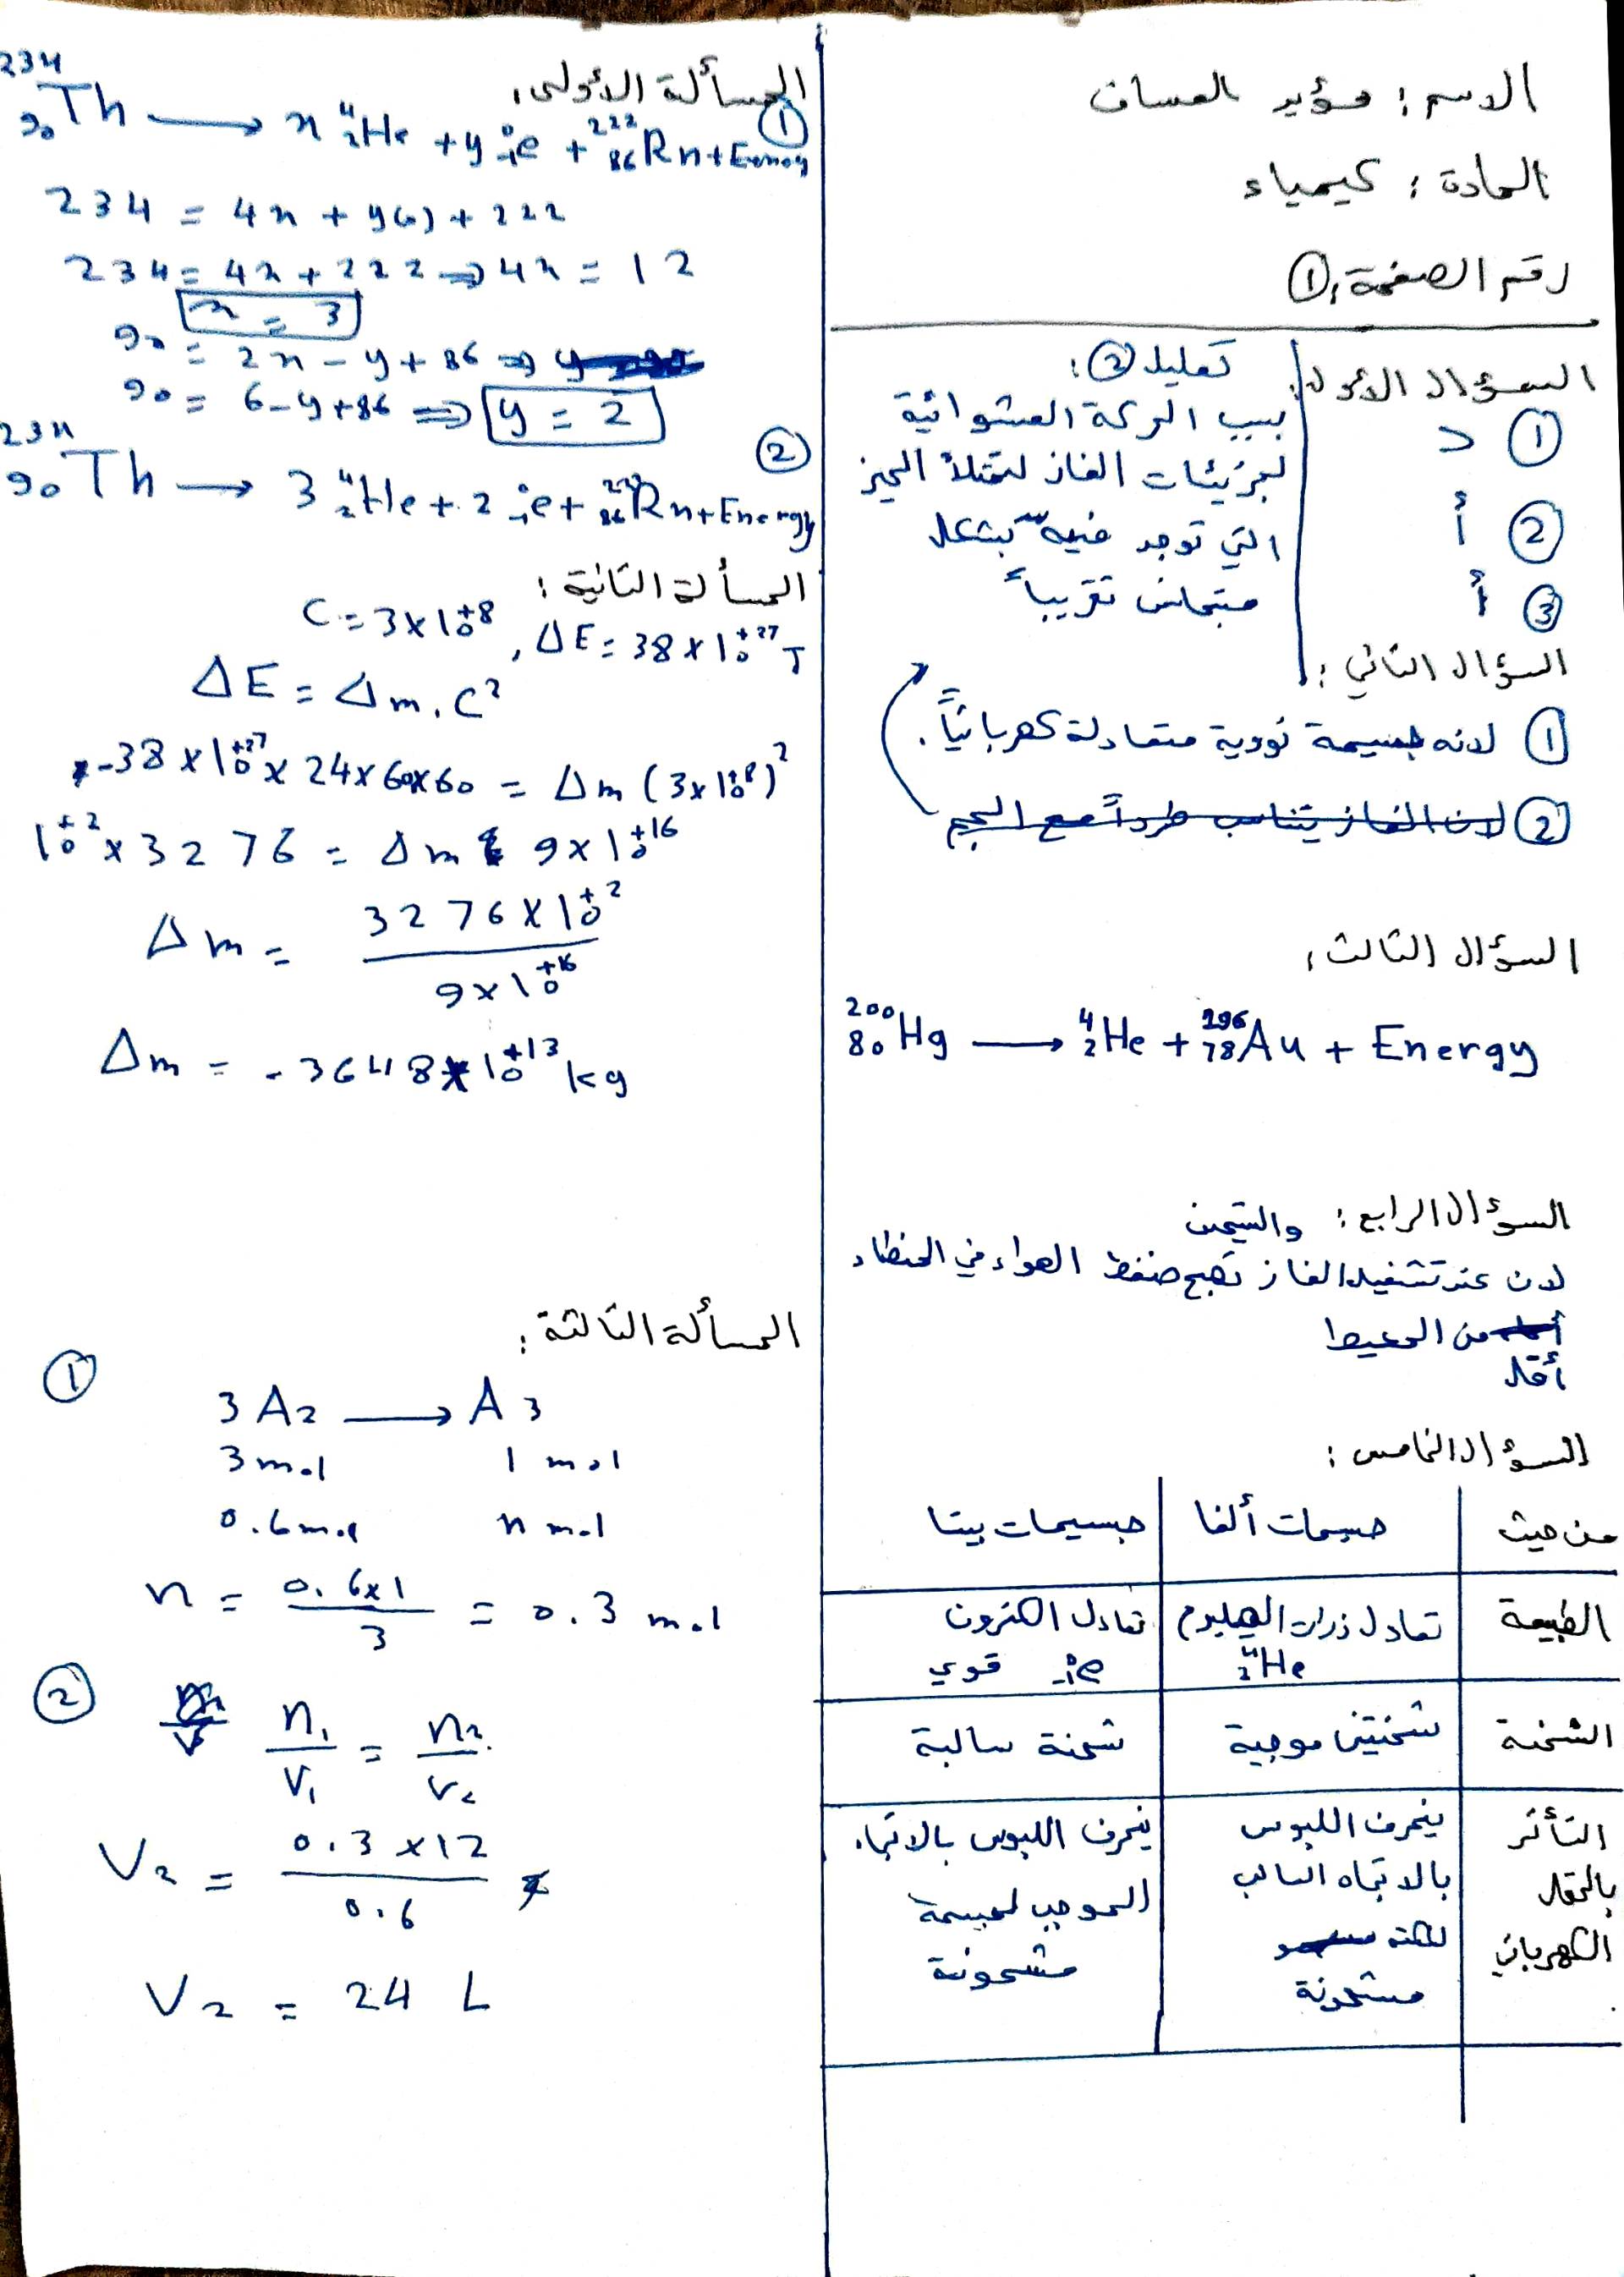 الاسم : مؤيد العساف
المادة : كيمياء
رقم الصفحة : ①
السؤال الأول :
① د
② أ
③ أ
تعليل ② :
بسبب الحركة العشوائية
لجزيئات الغاز لتمتلأ الحيز
التي توجد فيه بشكل
متجانس تقريباً
السؤال الثاني :
① لانه جسيمة نووية متعادلة كهربائياً .
② لان الغاز يتناسب طرداً مع الحجم
السؤال الثالث :
²⁰⁰₈₀Hg ⟶ ⁴₂He + ¹⁹⁶₇₈Au + Energy
السؤال الرابع : والتسخين
لان عند تشغيل الغاز تصبح ضغط الهواء في المنطاد
من المحيط
أقل
السؤال الخامس :
من حيث | جسيمات ألفا | جسيمات بيتا
الطبيعة | تعادل ذرات الهليوم ⁴₂He | تعادل الكترون ⁰₋₁e قوي
الشحنة | شحنتين موجبة | شحنة سالبة
التأثر بالحقل الكهربائي | ينحرف اللبوس بالاتجاه السالب لانه مشحونة | ينحرف اللبوس بالاتجاه الموجب لجسيمة مشحونة
المسألة الأولى :
①
²³⁴₉₀Th ⟶ x ⁴₂He + y ⁰₋₁e + ²²²₈₆Rn + Energy
234 = 4x + y(0) + 222
234 = 4x + 222 ⇒ 4x = 12
x = 3
90 = 2x - y + 86 ⇒ y
90 = 6 - y + 86 ⇒ y = 2
②
²³⁴₉₀Th ⟶ 3 ⁴₂He + 2 ⁰₋₁e + ²²²₈₆Rn + Energy
المسألة الثانية :
C = 3 × 10⁺⁸ , ΔE = 38 × 10⁺²⁷ J
ΔE = Δm . C²
-38 × 10⁺²⁷ × 24 × 60 × 60 = Δm (3 × 10⁺⁸)²
10⁺² × 3276 = Δm 9 × 10⁺¹⁶
Δm = 3276 × 10⁺² / 9 × 10⁺¹⁶
Δm = - 3648 × 10⁺¹³ kg
المسألة الثالثة :
①
3 A₂ ⟶ A₃
3 mol 1 mol
0.6 mol n mol
n = 0.6 × 1 / 3 = 0.3 mol
②
n₁ / V₁ = n₂ / V₂
V₂ = 0.3 × 12 / 0.6
V₂ = 24 L